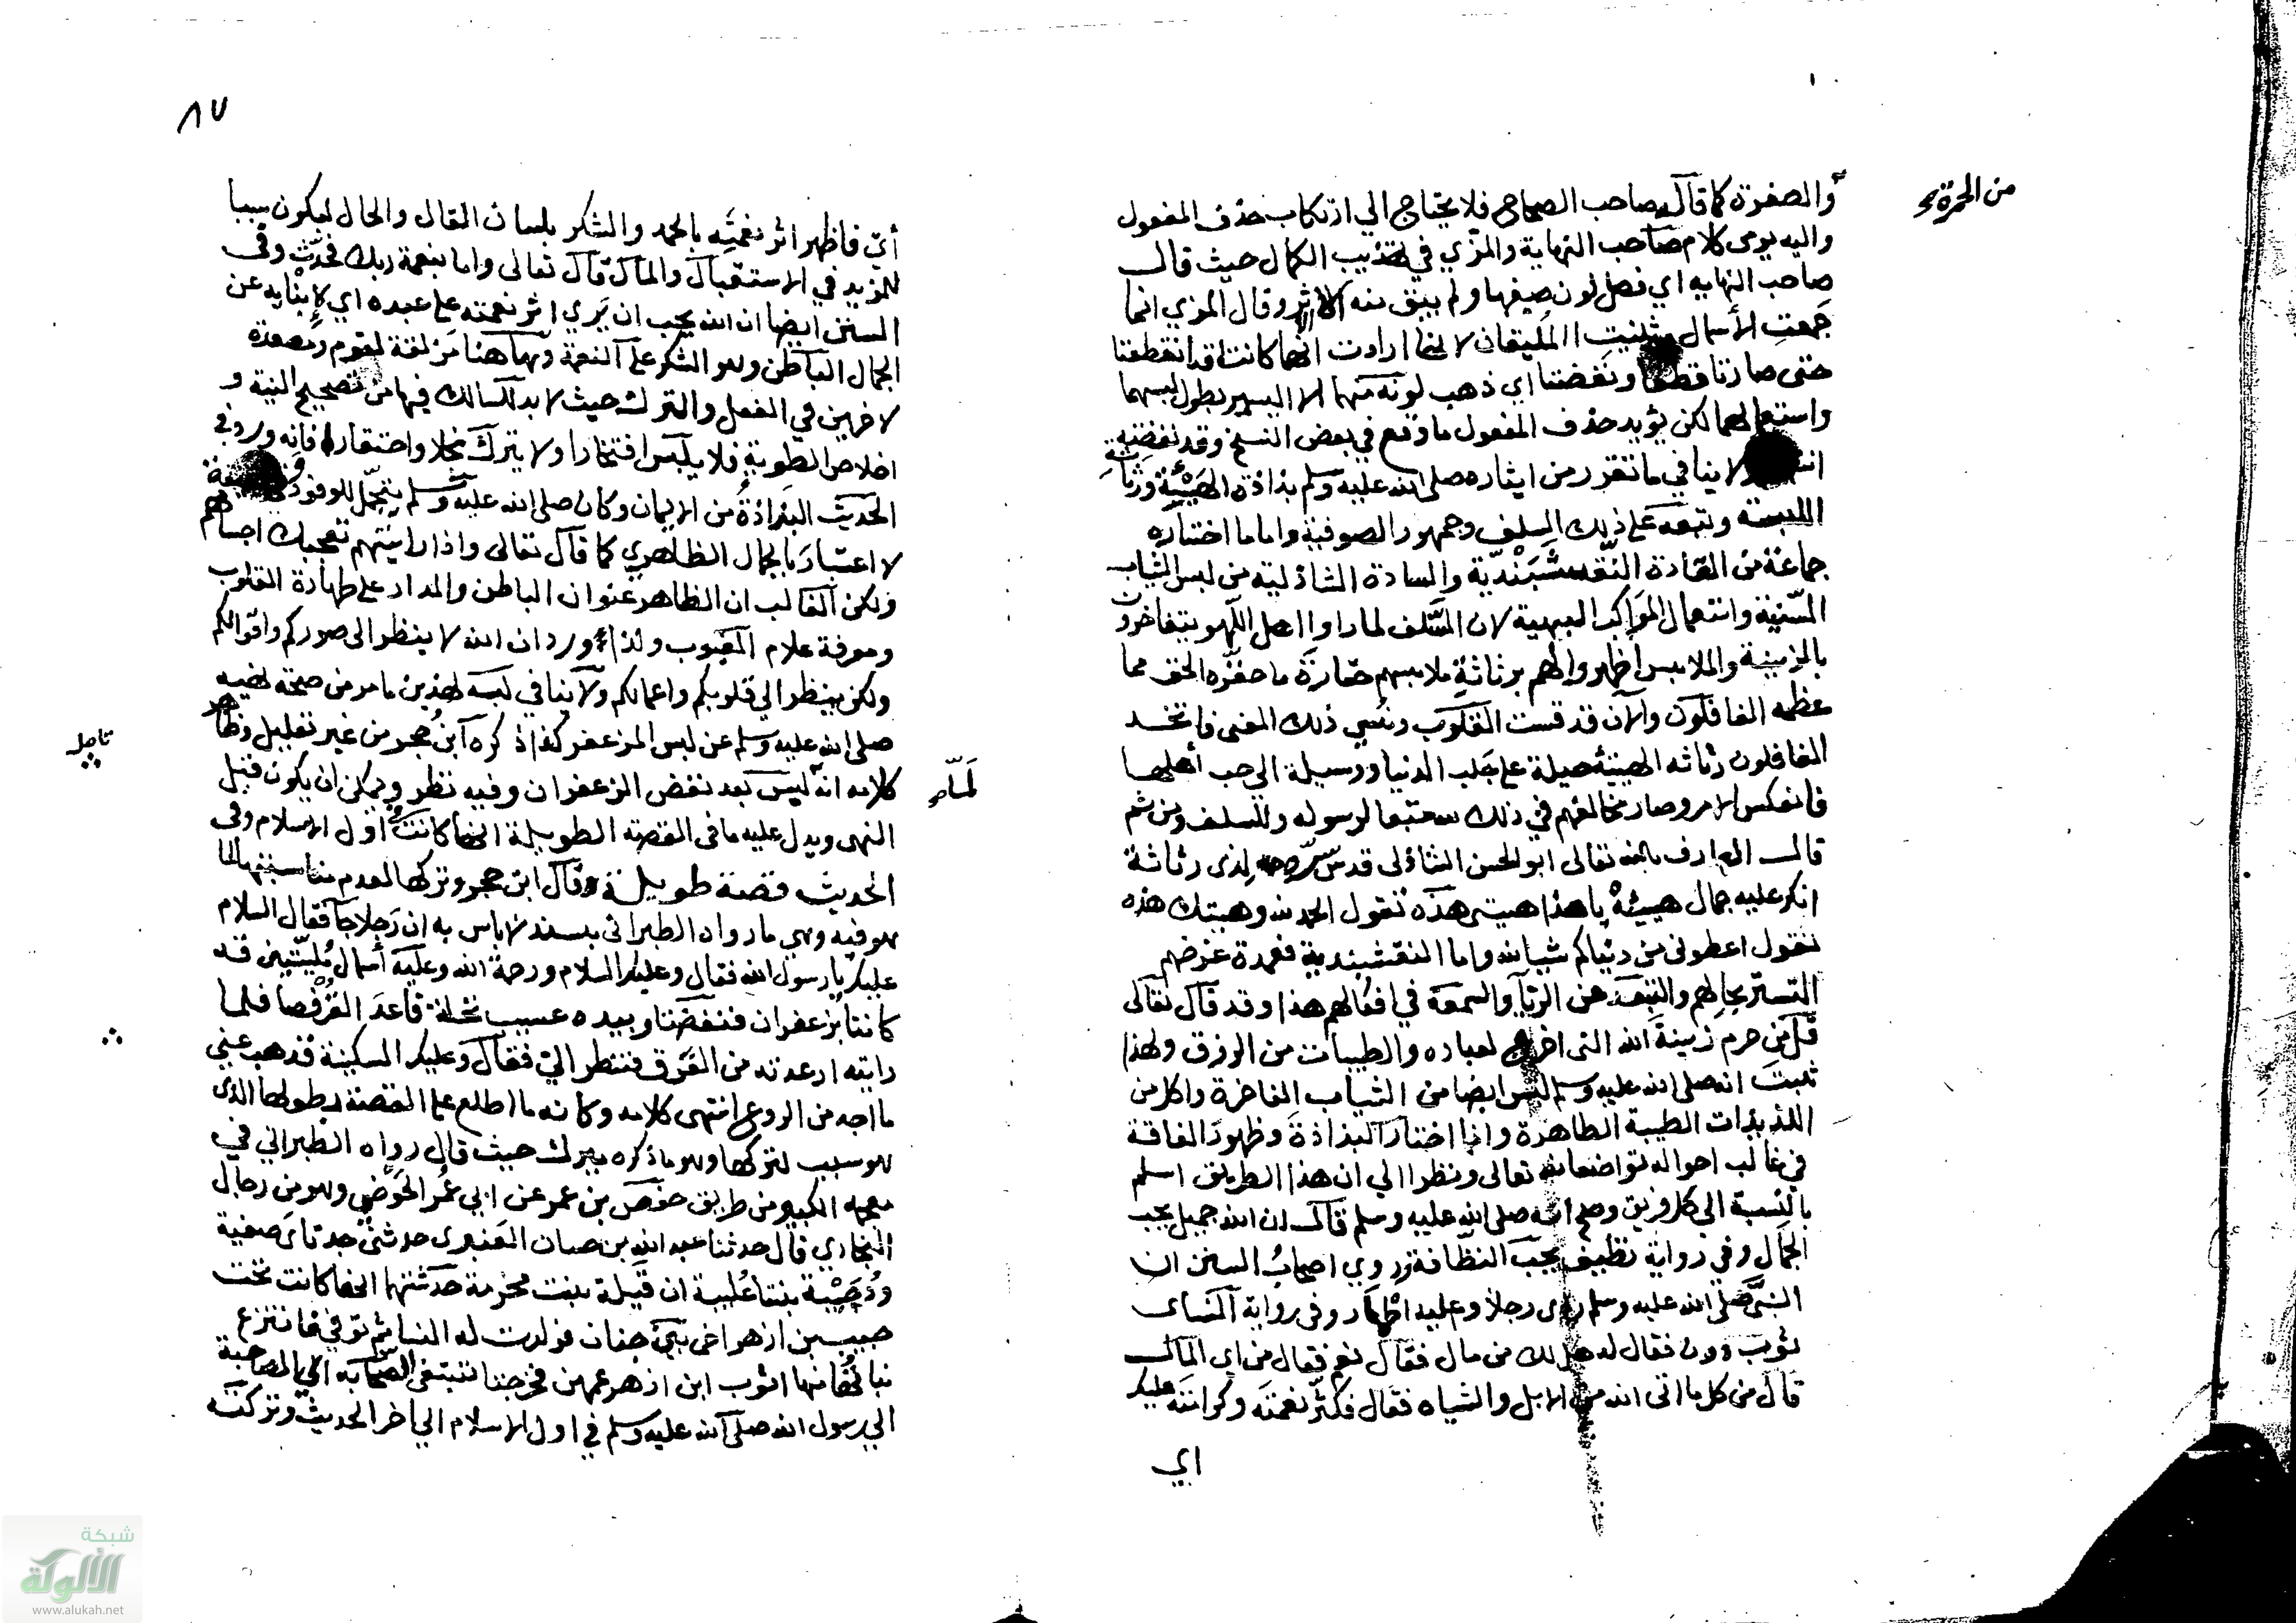 من الحمرة صح
والصفرة كما قاله صاحب الصحاح فلا يحتاج الي ارتكاب حذف المفعول
واليه يومى كلام صاحب النهاية والمزي في تهذيب الكمال حيث قال
صاحب النهايه اي نصل لون صبغهما ولم يبق منه الا الاثر وقال المزي انما
جمعت الأسمال وثنيت المليتان لانها ارادت انهما كانتا قد انقطعتا
حتى صارتا قطعا ونفضتا اي ذهب لونه منهما الا اليسير بطول لبسهما
واستعمالهما لكن يؤيد حذف المفعول ما وقع في بعض النسخ وقد نفضته
لا ينافي ما تقرر من ايثاره صلى الله عليه وسلم بذاذة الهيئة ورثاثة
اللبسة وتبعه على ذلك السلف وجمهور الصوفية واما ما اختاره
جماعة من القادة النقشبندية والسادة الشاذلية من لبس الثياب
السنية واستعمال المواكب البهية لان السلف لما راوا اهل اللهو يتفاخرون
بالزينة والملابس اظهروا لهم برثاثة ملابسهم حقارة ما حقره الحق مما
عظمه الغافلون والآن قد قست القلوب ونسي ذلك المعنى فاتخذ
الغافلون رثاثه الهيئة حيلة على جلب الدنيا ووسيلة الي حب أهلها
فانعكس الامر وصار مخالفهم في ذلك متبعا لرسوله وللسلف ومن ثم
قال العارف بالله تعالى ابو الحسن الشاذلى قدس سره لذى رثاثة
انكر عليه جمال هيئة ياهذا هيئتى هذه تقول الحمد لله وهيئتك هذه
تقول اعطونى من دنياكم شيا لله واما النقشبندية فعمدة غرضهم
التستر بحالهم والتبعد عن الريآ والسمعة في افعالهم هذا وقد قال تعالى
قل من حرم زينة الله التى اخرج لعباده والطيبات من الرزق ولهذا
ثبت انه صلى الله عليه وسلم لبس ايضا من الثياب الفاخرة واكل من
اللذيذات الطيبة الطاهرة وانما اختار البذاذة وظهور الفاقة
في غالب احواله تواضعا لله تعالى ونظرا الي ان هذا الطريق اسلم
بالنسبة الي كل فريق وصح انه صلى الله عليه وسلم قال ان الله جميل يحب
الجمال وفي رواية نظيف يحب النظافة وروي اصحاب السنن ان
النبي صلى الله عليه وسلم راى رجلا وعليه اطمار وفى رواية النساى
ثوب دون فقال له هل لك من مال فقال نعم فقال من اي المال
قال من كل ما اتى الله من الابل والشياه فقال فكثر نعمته وكرامته عليك
اي
٨٧
أي فاظهر اثر نعمته بالحمد والشكر بلسان القال والحال ليكون سببا
للمزيد في الاستقبال والمآل قال تعالى واما بنعمة ربك فحدث وفى
السنن ايضا ان الله يحب ان يري اثر نعمته على عبده اي لإنبايه عن
الجمال الباطن وهو الشكر على النعمة وههنا مزلقة لقوم ومصعدة
لاخرين في الفعل والترك حيث لا بد للسالك فيهما من تصحيح النية و
اخلاص الطوية فلا يلبس افتخارا ولا يترك بخلا واحتقارا فانه ورد في
الحديث البذاذة من الايمان وكان صلى الله عليه وسلم يتجمل للوفود
لا اعتبار بالجمال الظاهري كما قال تعالى واذا رايتهم تعجبك اجسامهم
ولكن الغالب ان الظاهر عنوان الباطن والمدار على طهارة القلوب
ومعرفة علام الغيوب ولذا ورد ان الله لا ينظر الى صوركم واقوالكم
ولكن ينظر الي قلوبكم واعمالكم ولا ينافي لبسه لهذين ما مر من صحة نهيه
صلى الله عليه وسلم عن لبس المزعفر كذا ذكره ابن حجر من غير تعليل وظاهر
تامل
كلامه انه لبس بعد نفض الزعفران وفيه نظر ويمكن ان يكون قبل
النهى ويدل عليه ما فى القصة الطويلة انها كانت اول الاسلام وفى
الحديث قصة طويلة وقال ابن حجر وتركها لعدم مناسبتها لما
هو فيه وهي ما رواه الطبرانى بسند لا باس به ان رجلا جآ فقال السلام
عليك يا رسول الله فقال وعليك السلام ورحمة الله وعليه أسمال مليتين قد
كانتا بزعفران فنفضتا وبيده عسيب نخلة قاعد القرفصا فلما
رايته ارعدت من الفرق فنظر الي فقال وعليك السكينة فذهب عني
ما اجد من الروع انتهى كلامه وكانه ما اطلع على القصة بطولها الذى
هو سبب لتركها وهو ما ذكره ميرك حيث قال رواه الطبراني في
معجمه الكبير من طريق حفص بن عمر عن ابي عمر الحوضي وهو من رجال
البخاري قال حدثنا عبد الله بن حسان العنبرى حدثني جدتاى صفية
ودحيبة بنتا عليبة ان قيلة بنت مخرمة حدثتهما انها كانت تحت
حبيب بن ازهر اخى بني جناب فولدت له النسا ثم توفي فانتزع
بناتها منها اثوب ابن ازهر عمهن فخرجنا تبتغى الصحابه اي المصاحبة
الي رسول الله صلى الله عليه وسلم في اول الاسلام الي اخر الحديث وتركته
شبكة
الألوكة
www.alukah.net